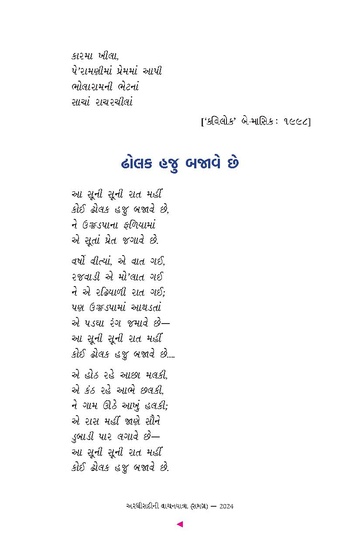 કારમા ખીલા,
પે'રામણીમાં પ્રેમમાં આપી
ભોલારામની ભેટનાં
સાચાં રાચરચીલાં
['કવિલોક' બે-માસિક : ૧૯૯૮]
ઢોલક હજુ બજાવે છે
આ સૂની સૂની રાત મહીં
કોઈ ઢોલક હજુ બજાવે છે,
ને ઉજ્જડપાના ફળિયામાં
એ સૂતાં પ્રેત જગાવે છે.
વર્ષો વીત્યાં, એ વાત ગઈ,
રજવાડી એ મો'લાત ગઈ
ને એ રઢિયાળી રાત ગઈ;
પણ ઉજ્જડપામાં આથડતાં
એ પડઘા રંગ જમાવે છે—
આ સૂની સૂની રાત મહીં
કોઈ ઢોલક હજુ બજાવે છે...
એ હોઠ રહે આછા મલકી,
એ કંઠ રહે આભે છલકી,
ને ગામ ઊઠે આખું હલકી;
એ રાસ મહીં જાણે સૌને
ડુબાડી પાર લગાવે છે—
આ સૂની સૂની રાત મહીં
કોઈ ઢોલક હજુ બજાવે છે.
અરધીસદીની વાચનયાત્રા (સમગ્ર) — 2024